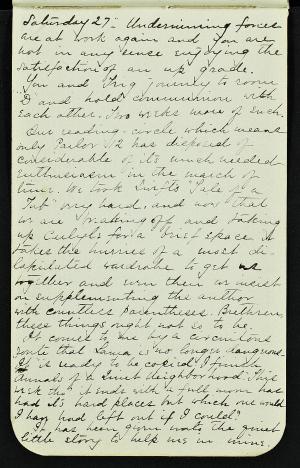 Saturday 27th Undermining forces
are at work again and you are
not in any sense enjoying the
satisfaction of an up grade.
You and Ting journey to room
D and hold communion with
each other. Two weeks more of such.
Our reading-circle which means
only Parlor 12 has disposed of
considerable of its much needed
enthusiasm in the march of
time. We took Swift's Tale of a
Tub very hard, and now that
we are breaking off and taking
up Carlyle for a brief space it
takes the hurries of a most di-
lapidated wardrobe to get us
together and even then we insist
on supplementing the author
with countless parentheses. Brethren,
these things ought not so to be.
It comes to me by a circuitous
route that Laura is "no longer dangerous."
It is ready to be copied, I finish
Annals of a Quiet Neighborhood this
with a full
had its hard places but which one would
I have had left out if I could?
It has been given unto the quiet
little story to help me in mine.